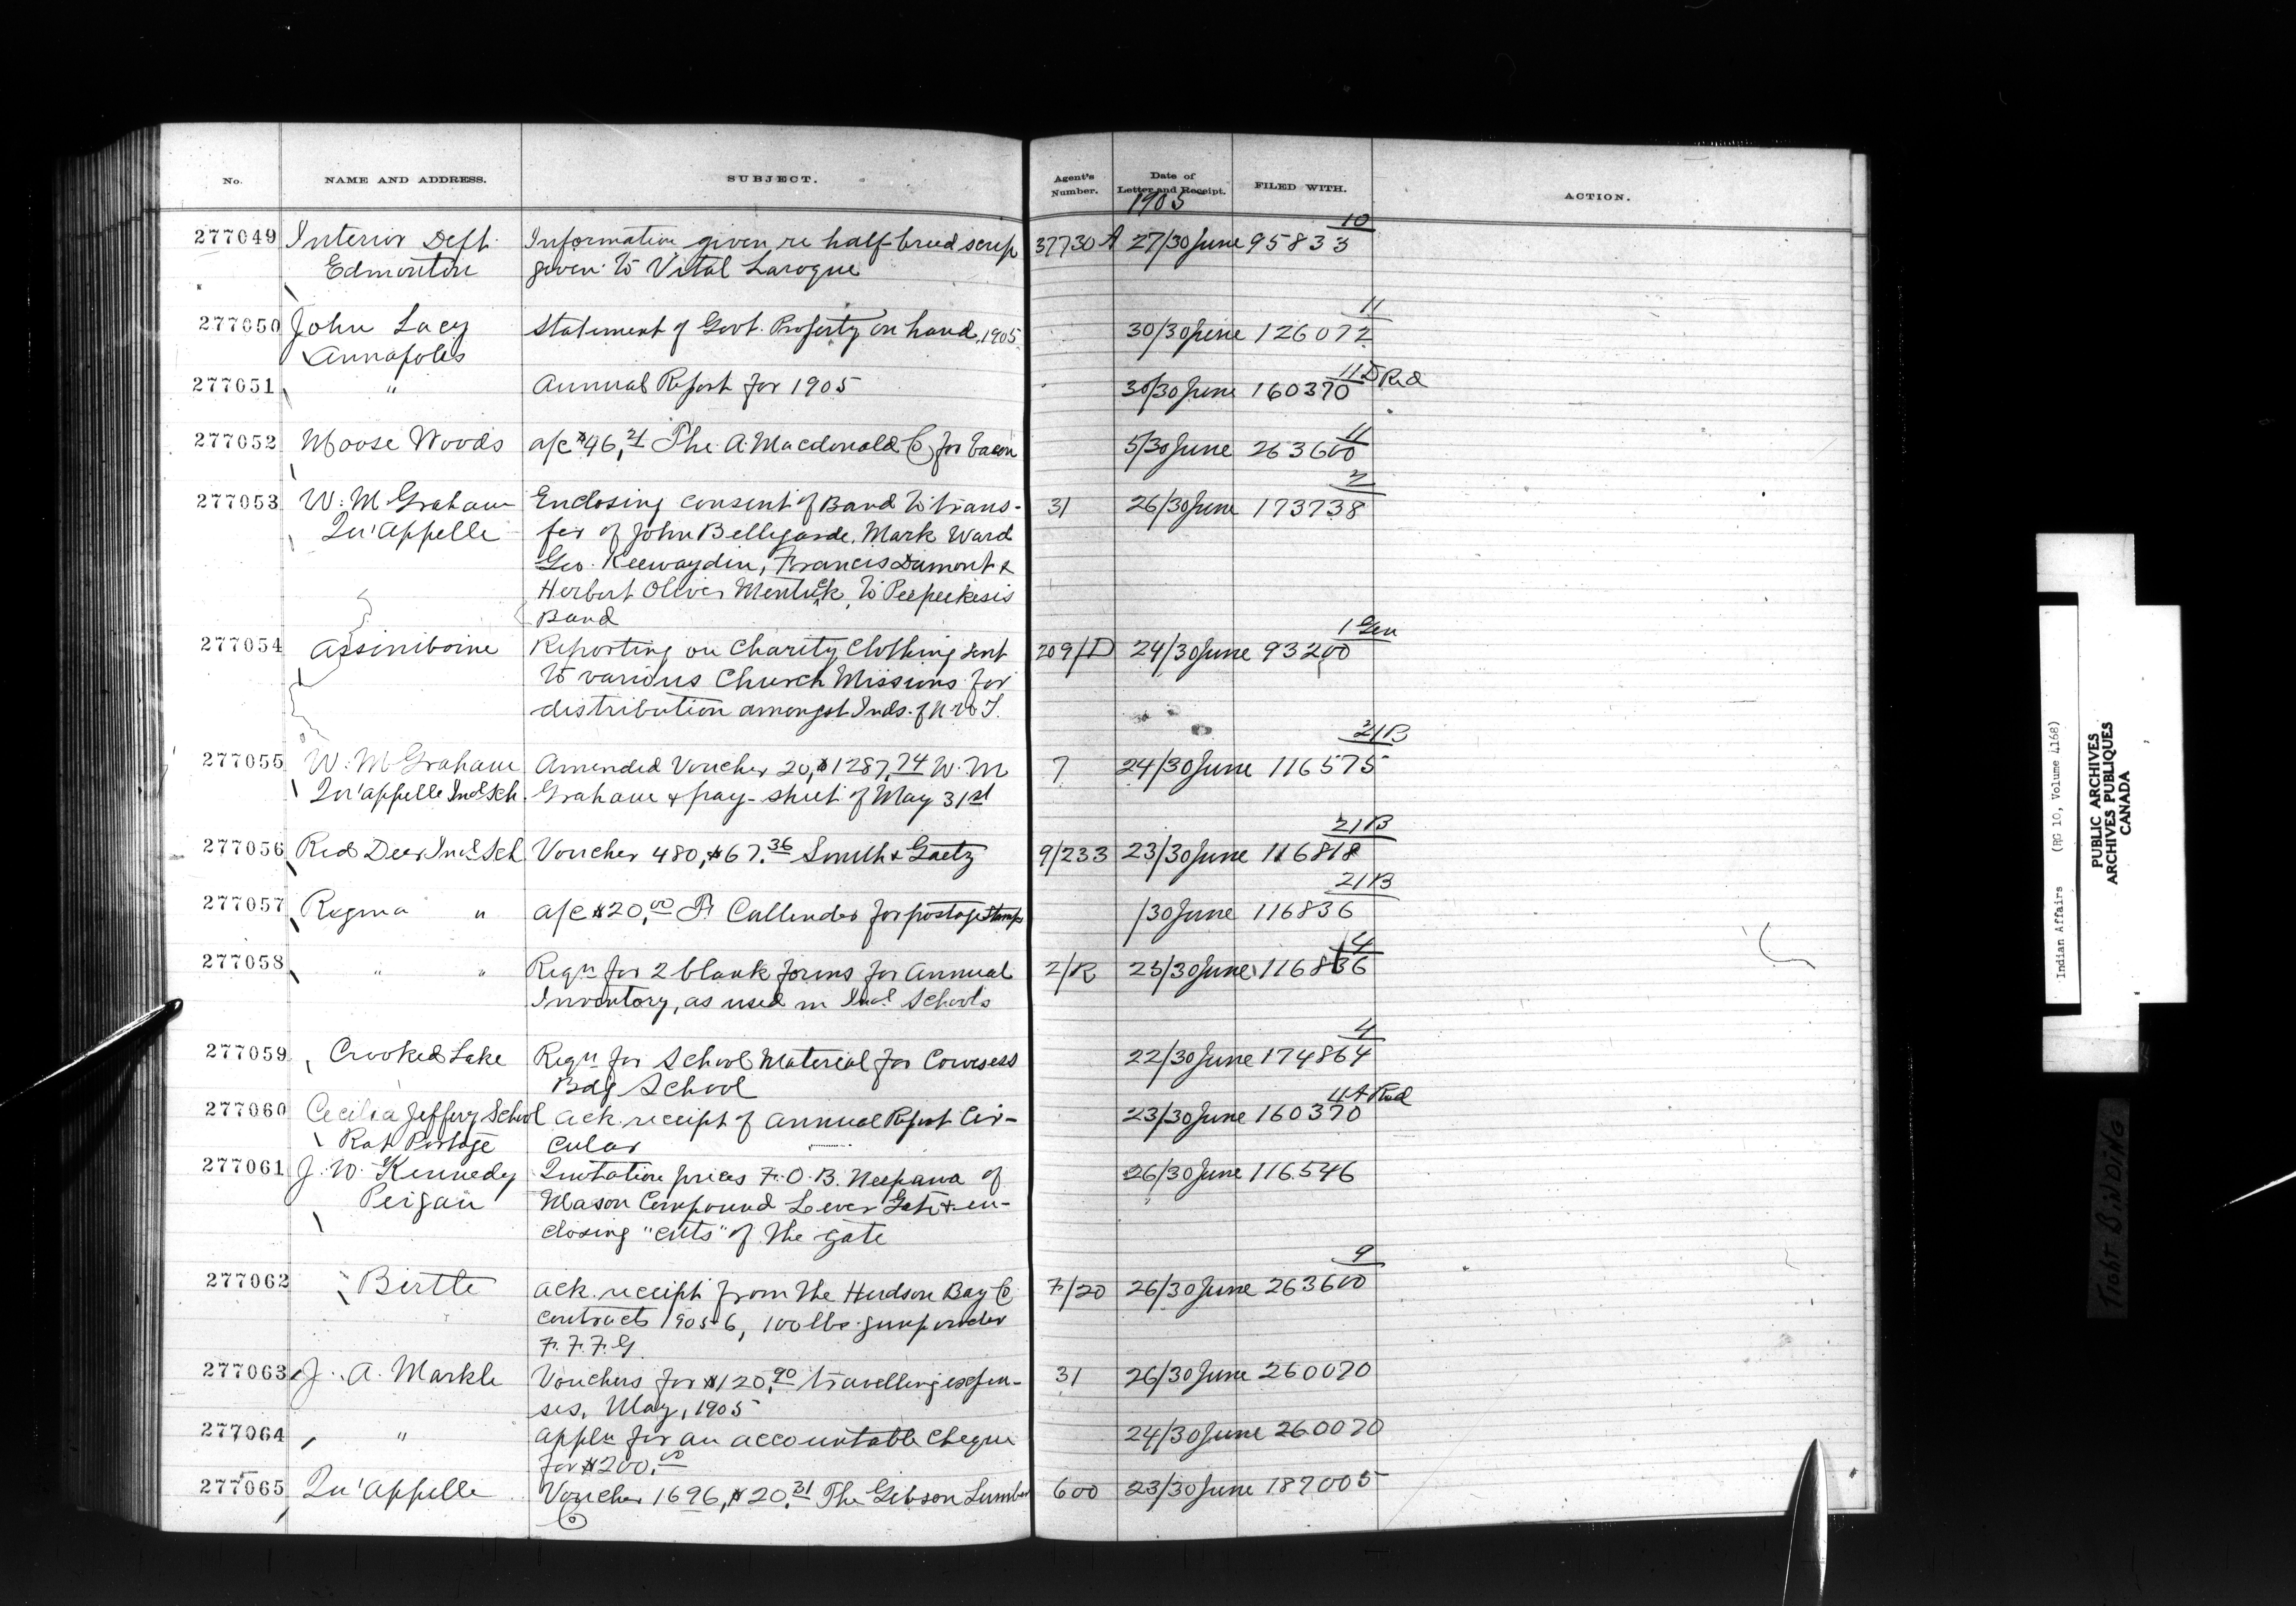 No. NAME AND ADDRESS. SUBJECT. Agent's Number. Date of Letter and Receipt. FILED WITH. ACTION.
1905
10
277049 Interior Dept. Information given re half-breed scrip 37730 A 27/30 June 95833
Edmonton given to Vital Laroque
11
277050 John Lacy Statement of Govt. Property on hand, 1905 30/30 June 126072
Annapolis
11 D Red
277051 " Annual Report for 1905 30/30 June 160370
11
277052 Moose Woods a/c $46.21 The A. Macdonald Co for bacon 5/30 June 263600
2
277053 W. M Graham Enclosing consent of Band to trans- 31 26/30 June 173738
Qu'Appelle fer of John Bellegarde, Mark Ward
Geo. Keewaydin, Francis Dumont &
Herbert Oliver Mentuck, to Peepeekesis
Band
1 Gen
277054 Assiniboine Reporting on Charity Clothing sent 209/D 24/30 June 93200
to various Church Missions for
distribution amongst Inds. of N.W.T.
21B
277055 W. M Graham Amended Voucher 20, $1287.74 W. M 7 24/30 June 116575
Qu'appelle Indl Sch. Graham & pay-sheet of May 31st
21B
277056 Red Deer Indl Sch Voucher 480, $67.36 Smith & Gaetz 9/233 23/30 June 116818
21B
277057 Regina " a/c $20.00 Callender for postage stamps /30 June 116836
4
277058 " " Reqn for 2 blank forms for Annual 2/R 23/30 June 116836
Inventory, as used in Indl Schools
4
277059 Crooked Lake Reqn for School Material for Cowesess 22/30 June 174864
Bdg School
11 A Red
277060 Cecilia Jeffery School Ack. receipt of Annual Report Cir- 23/30 June 160370
Rat Portage cular
277061 J. W. Kennedy Quotation prices F.O.B. Neepawa of 26/30 June 116546
Peigan Mason Compound Lever Gate & en-
closing "cuts" of the gate
9
277062 Birtle Ack. receipt from the Hudson Bay Co 7/20 26/30 June 263600
contract 1905-6, 100 lbs. gunpowder
F.F.F.G.
277063 J. A. Markle Vouchers for $120.90 travelling expen- 31 26/30 June 260070
ses, May, 1905
277064 " Appln for an accountable cheque 24/30 June 260070
for $200.00
277065 Qu'appelle Voucher 1696, $20.31 The Gibson Lumber 600 23/30 June 187005
Co
Indian Affairs (RG 10, Volume 4168)
PUBLIC ARCHIVES
ARCHIVES PUBLIQUES
CANADA
TIGHT BINDING